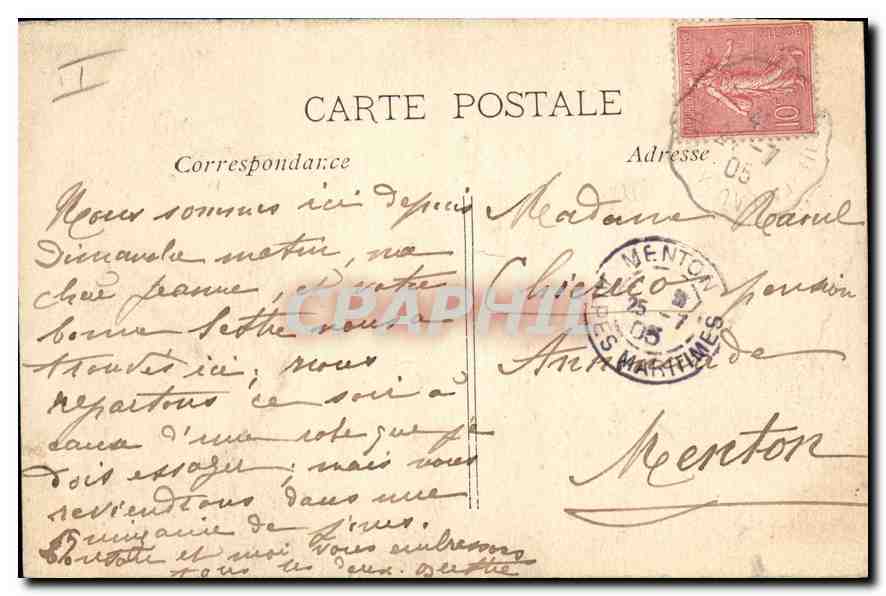 I
CARTE POSTALE
Correspondance
Adresse
Nous sommes ici depuis
Dimanche matin, ma
chère Jeanne, et votre
bonne lettre nous a
trouvés ici; nous
repartons ce soir à
cause d'une robe que je
dois essayer; mais nous
reviendrons dans une
quinzaine de jours.
et moi vous embrassons
tous les deux. Berthe
Madame Raoul
Chierico pension
Menton
10
05
MENTON
25 -7
05
ALPES MARITIMES
CPAPHIL